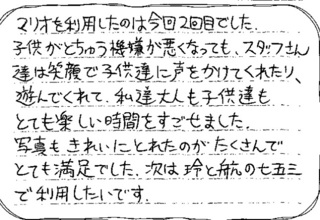 マリオを利用したのは今回2回目でした。
子供がとちゅう機嫌が悪くなっても、スタッフさん
達は笑顔で子供達に声をかけてくれたり、
遊んでくれて、私達大人も子供達も
とても楽しい時間をすごせました。
写真もきれいにとれたのがたくさんで
とても満足でした。次は玲と航の七五三
で利用したいです。